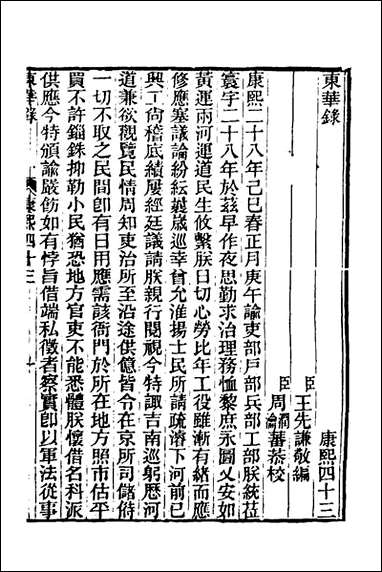 東華錄
康熙四十三
臣王先謙敬編
臣周潤蕃周瀹蕃恭校
康熙二十八年己巳春正月庚午諭吏部戸部兵部工部朕統莅
寰宇二十八年於茲早作夜思勤求治理務恤黎庶永圖乂安如
黃運兩河運道民生攸繫朕日切心勞比年工役雖漸有緒而應
修應塞議論紛紜曩歲巡幸曾允淮揚士民所請疏濬下河前已
興工尚稽底績屢經廷議請朕親行閱視今特諏吉南巡躬歷河
道兼欲觀覽民情周知吏治所至沿途供億皆令在京所司儲偫
一切不取之民間卽有日用應需該衙門於所在地方照市估平
買不許錙銖抑勒小民猶恐地方官吏不能悉體朕懷借名科派
供應今特頒諭嚴飭如有悖旨借端私徵者察實卽以軍法從事
東華錄
康熙四十三